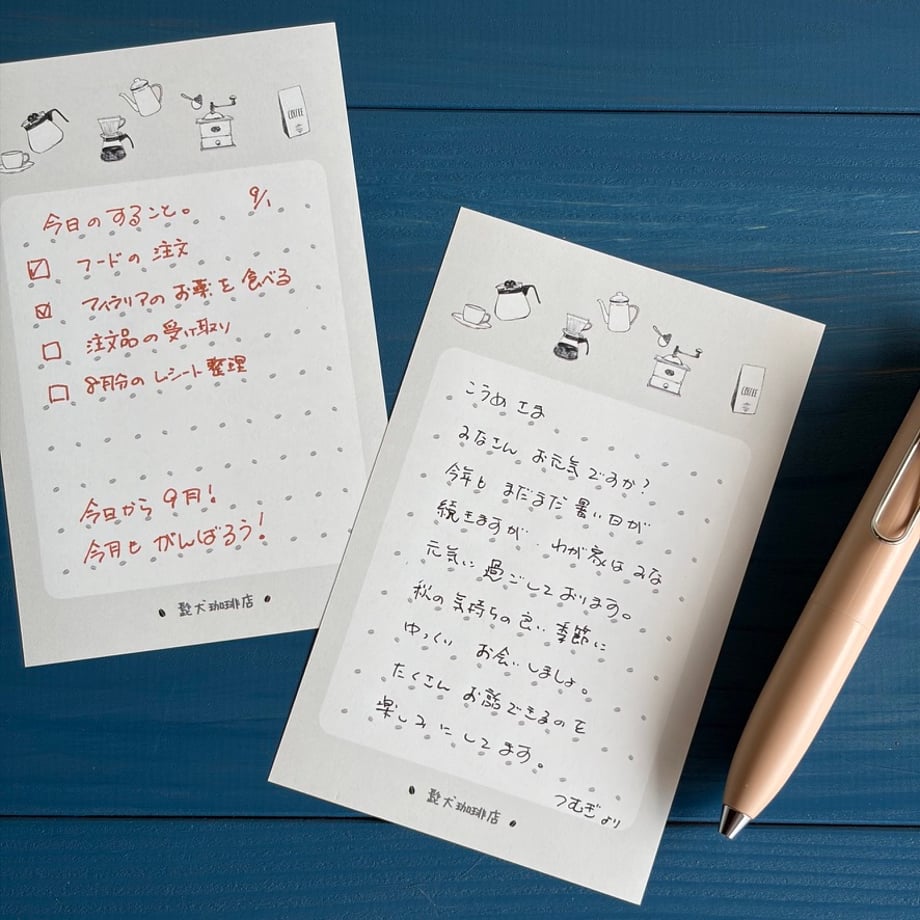 COFFEE
今日のすること。 9/1
フードの注文
フィラリアのお薬を食べる
注文品の受け取り
8月分のレシート整理
今日から9月!
今月もがんばろう!
豆犬珈琲店
COFFEE
こうめさま
みなさん お元気ですか?
今年も まだまだ暑い日が
続きますが、わが家はみな
元気に過ごしております。
秋の気持ちの良い季節に
ゆっくり お会いしましょ。
たくさん お話できるのを
楽しみにしてます。
つむぎより
豆犬珈琲店